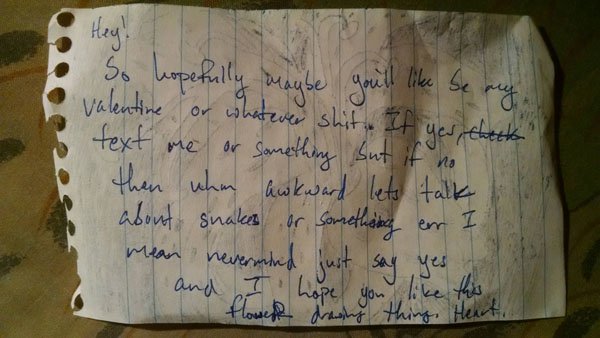 Hey!
So hopefully maybe you'll like be my
valentine or whatever shit.. If yes, check
text me or something but if no
then uhm awkward lets talk
about snakes or something err I
mean nevermind just say yes
and I hope you like this
flower drawing thing. Heart.